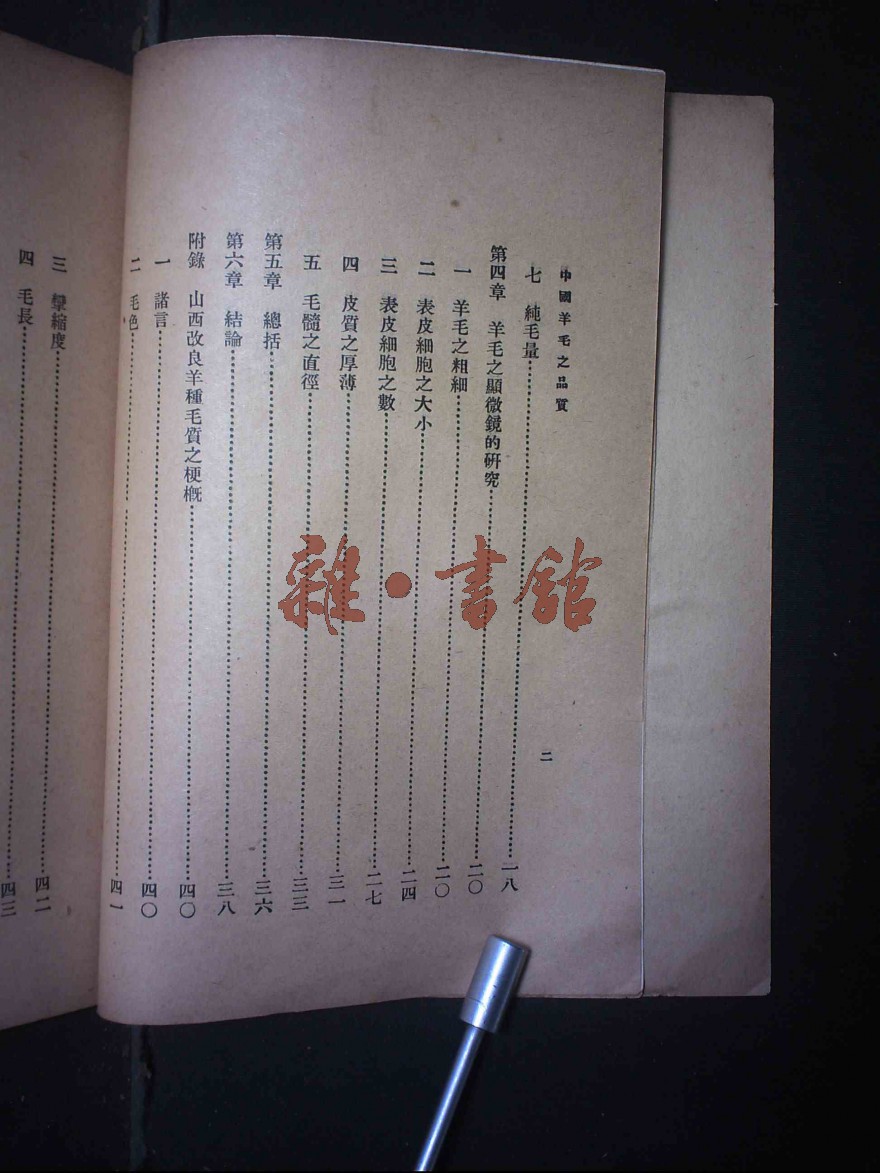 中國羊毛之品質
二
七 純毛量……一八
第四章 羊毛之顯微鏡的硏究……二〇
一 羊毛之粗細……二〇
二 表皮細胞之大小……二四
三 表皮細胞之數……二七
四 皮質之厚薄……三一
五 毛髓之直徑……三三
第五章 總括……三六
第六章 結論……三八
附錄 山西改良羊種毛質之梗槪……四〇
一 諸言……四〇
二 毛色……四一
三 攣縮度……四二
四 毛長……四三
雜·書館